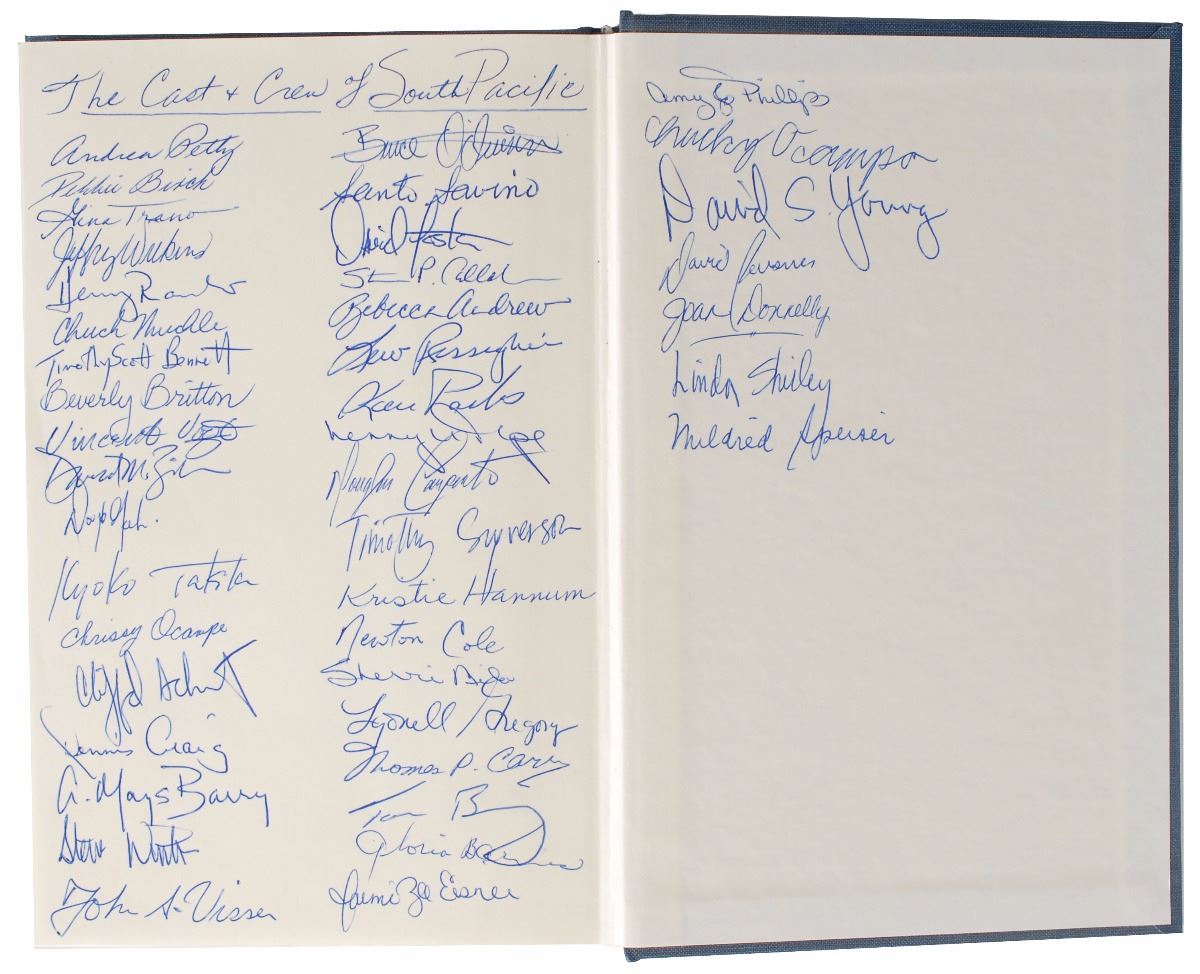 The Cast & Crew of South Pacific
Andrea Petty
Debbie Birch
Gina Trano
Jeffry Watkins
Denny
Chuck Muckle
Timothy Scott Bennett
Beverly Britton
Vincent
David M.
Kyoko Takita
Chrissy Ocampo
Clifford
Dennis Craig
A. Mays Barry
Steve
John A. Visser
Bruce O'Quinn
Santo Savino
David Foster
P.
Rebecca Andrew
Lew Resseguie
Ken Parks
Lenny Wolpe
Douglas
Timothy Syverson
Kristie Hannum
Newton Cole
Sherri
Lyonell Gregory
Thomas P. Carr
Tom
Gloria
Jaimi Zoe Eisner
Amy Jo Phillips
Chucky Ocampo
David S. Young
David
Joan Donnelly
Linda Shirley
Mildred Speiser